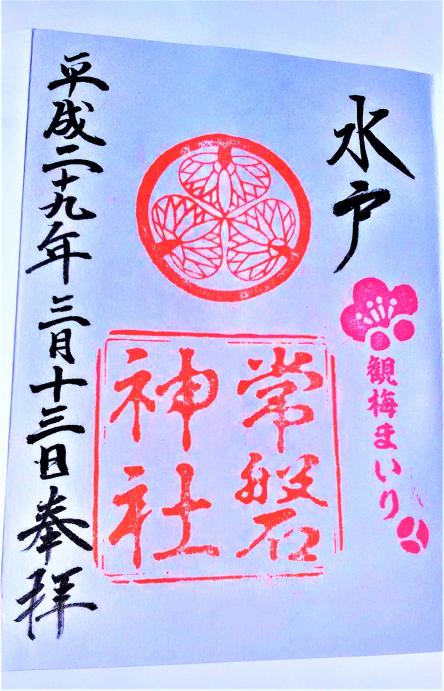 水戸
観梅まいり
常磐
神社
平成二十九年三月十三日奉拝